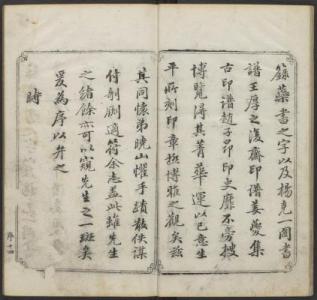 籙藥書之字以及楊克一圖書
譜王厚之復齋印譜姜夔集
古印譜趙子昂印史靡不旁搜
博覽得其菁華運以己意生
平所刻印章極博雅之觀矣茲
其同懷弟曉山懼手蹟散佚謀
付剞劂適符余志蓋此雖先生
之緒餘亦可以窺先生之一斑矣
爰為序以弁之
時
序十四